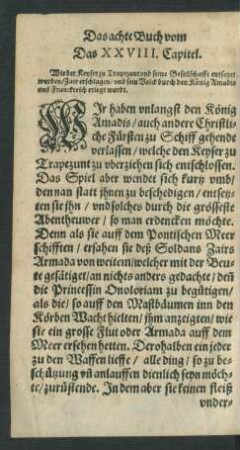 Das achte Buch vom
Das XXVIII. Capitel.
Wie der Keyser zu Trapezunt vnd seine Gesellschafft entsetzet
wurden/Zair erschlagen/vnd sein Volck durch den König Amadis
auß Franckreich erlegt wardt.
WIr haben vnlangst den König
Amadis/auch andere Christli-
che Fürsten zu Schiff gehende
verlassen/welche den Keyser zu
Trapezunt zu vberziehen sich entschlossen.
Das Spiel aber wendet sich kurtz vmb/
denn an statt jhnen zu beschedigen/entsetz-
ten sie jhn/vnd solches durch die grösseste
Abentheuwer/so man erdencken möchte.
Denn als sie auff dem Pontischen Meer
schifften/ersahen sie deß Soldans Zairs
Armada von weitem/welcher mit der Beu-
te gesätiget/an nichts anders gedachte/deñ
die Princessin Onoloriam zu begütigen/
als die/so auff den Mastbäumen inn den
Körben Wacht hielten/jhm anzeigten/wie
sie ein grosse Flut oder Armada auff dem
Meer ersehen hetten. Derohalben ein jeder
zu den Waffen lieffe/alle ding/so zu be-
schützung vñ anlauffen dienlich seyn möch-
te/zurüstende. In dem aber sie keinen fleiß
vnder-